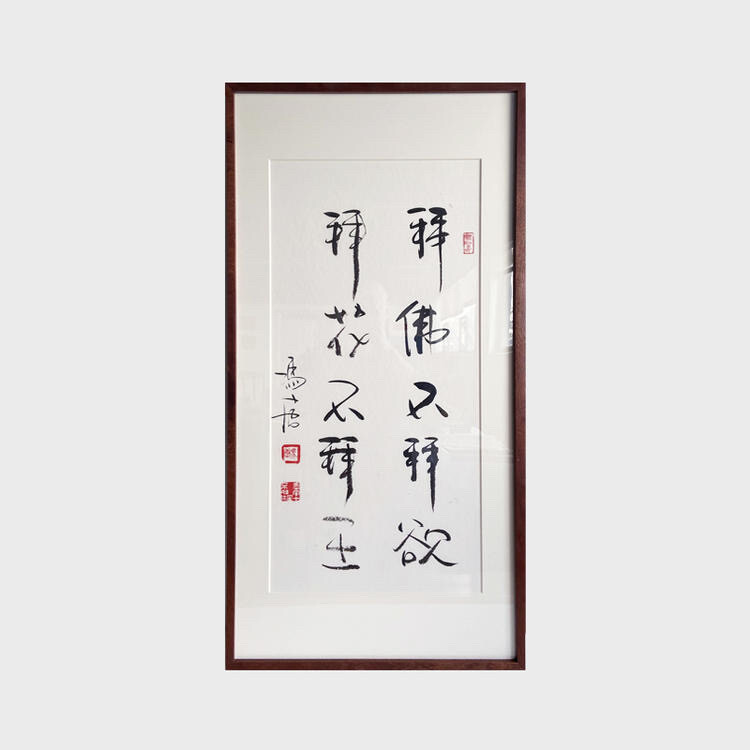 拜佛不拜欲
拜花不拜王